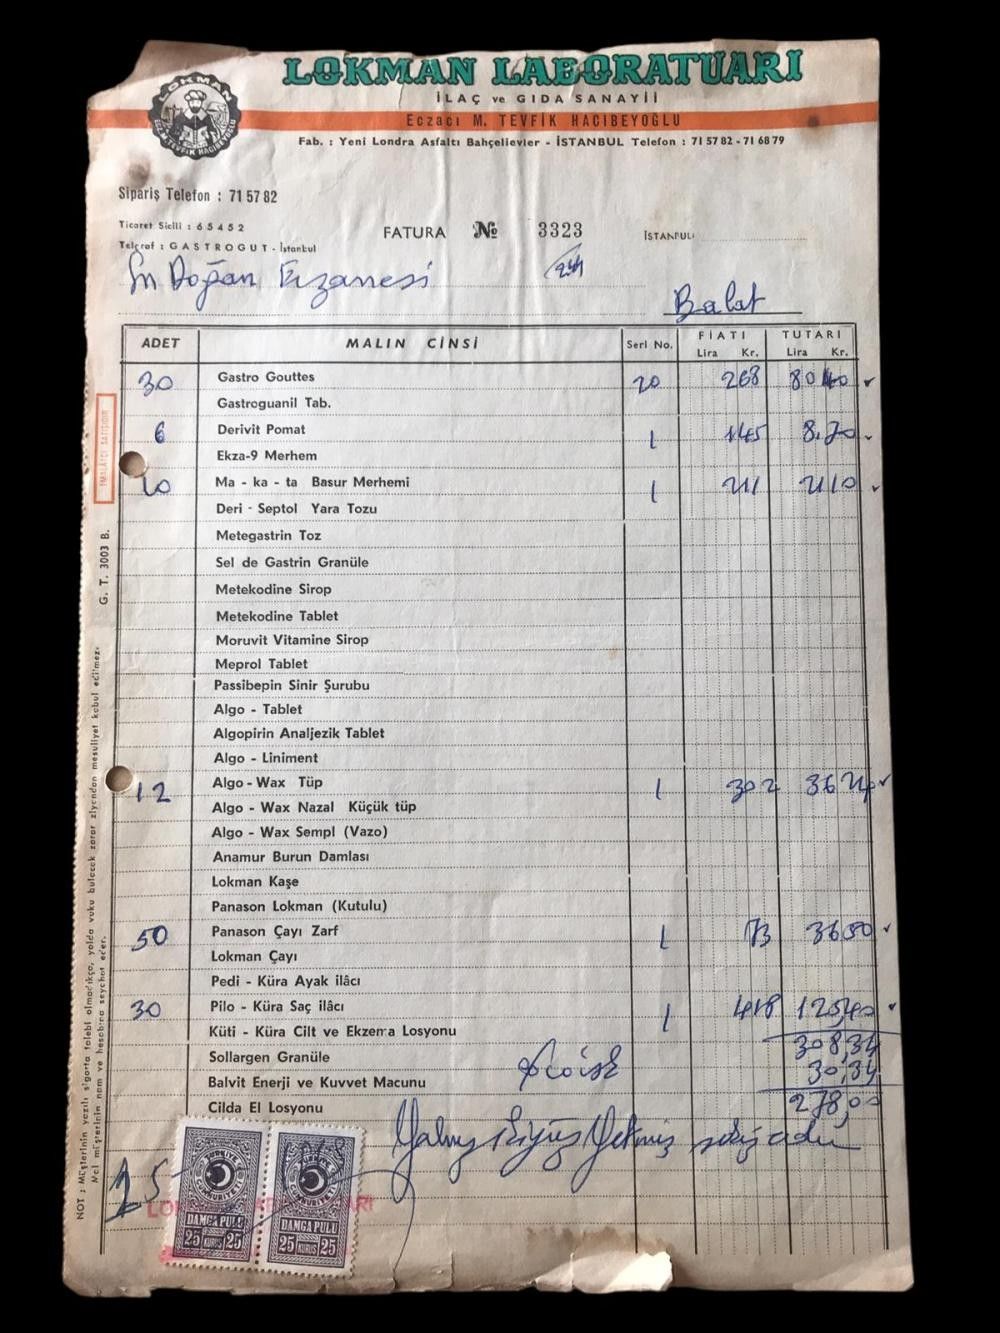 LOKMAN LABORATUARI
İLAÇ ve GIDA SANAYİİ
Eczacı M. TEVFİK HACIBEYOĞLU
Fab. : Yeni Londra Asfaltı Bahçelievler - İSTANBUL Telefon : 71 57 82 - 71 68 79
LOKMAN
ECZ. M. TEVFİK HACIBEYOĞLU
Sipariş Telefon : 71 57 82
Ticaret Sicili : 65452
Telgraf : GASTROGUT - İstanbul
FATURA № 3323 İSTANBUL
Sn Doğan Eczanesi
Balat
ADET MALIN CİNSİ Seri No. FİATI TUTARI
Lira Kr. Lira Kr.
30 Gastro Gouttes 20 268 80 40
Gastroguanil Tab.
6 Derivit Pomat 1 145 8.70
Ekza-9 Merhem
10 Ma - ka - ta Basur Merhemi 1 211 21 10
Deri - Septol Yara Tozu
Metegastrin Toz
Sel de Gastrin Granüle
Metekodine Sirop
Metekodine Tablet
Moruvit Vitamine Sirop
Meprol Tablet
Passibepin Sinir Şurubu
Algo - Tablet
Algopirin Analjezik Tablet
Algo - Liniment
12 Algo - Wax Tüp 1 302 36 24
Algo - Wax Nazal Küçük tüp
Algo - Wax Sempl (Vazo)
Anamur Burun Damlası
Lokman Kaşe
Panason Lokman (Kutulu)
50 Panason Çayı Zarf 1 73 36 50
Lokman Çayı
Pedi - Küra Ayak ilâcı
30 Pilo - Küra Saç ilâcı 1 418 125,40
Küti - Küra Cilt ve Ekzema Losyonu
308,34
Sollargen Granüle
30,34
Balvit Enerji ve Kuvvet Macunu
278,00
Cilda El Losyonu
Yalnız ikiyüz Yetmiş sekiz
TÜRKİYE CUMHURİYETİ
DAMGA PULU
25 KURUŞ 25
TÜRKİYE CUMHURİYETİ
DAMGA PULU
25 KURUŞ 25
İMALATÇI SATIŞIDIR
G. T. 3003 B.
NOT : Müşterinin yazılı sigorta talebi olmadıkça, yolda vuku bulacak zarar ziyandan mesuliyet kabul edilmez.
Mal müşterinin nam ve hesabına seyahat eder.